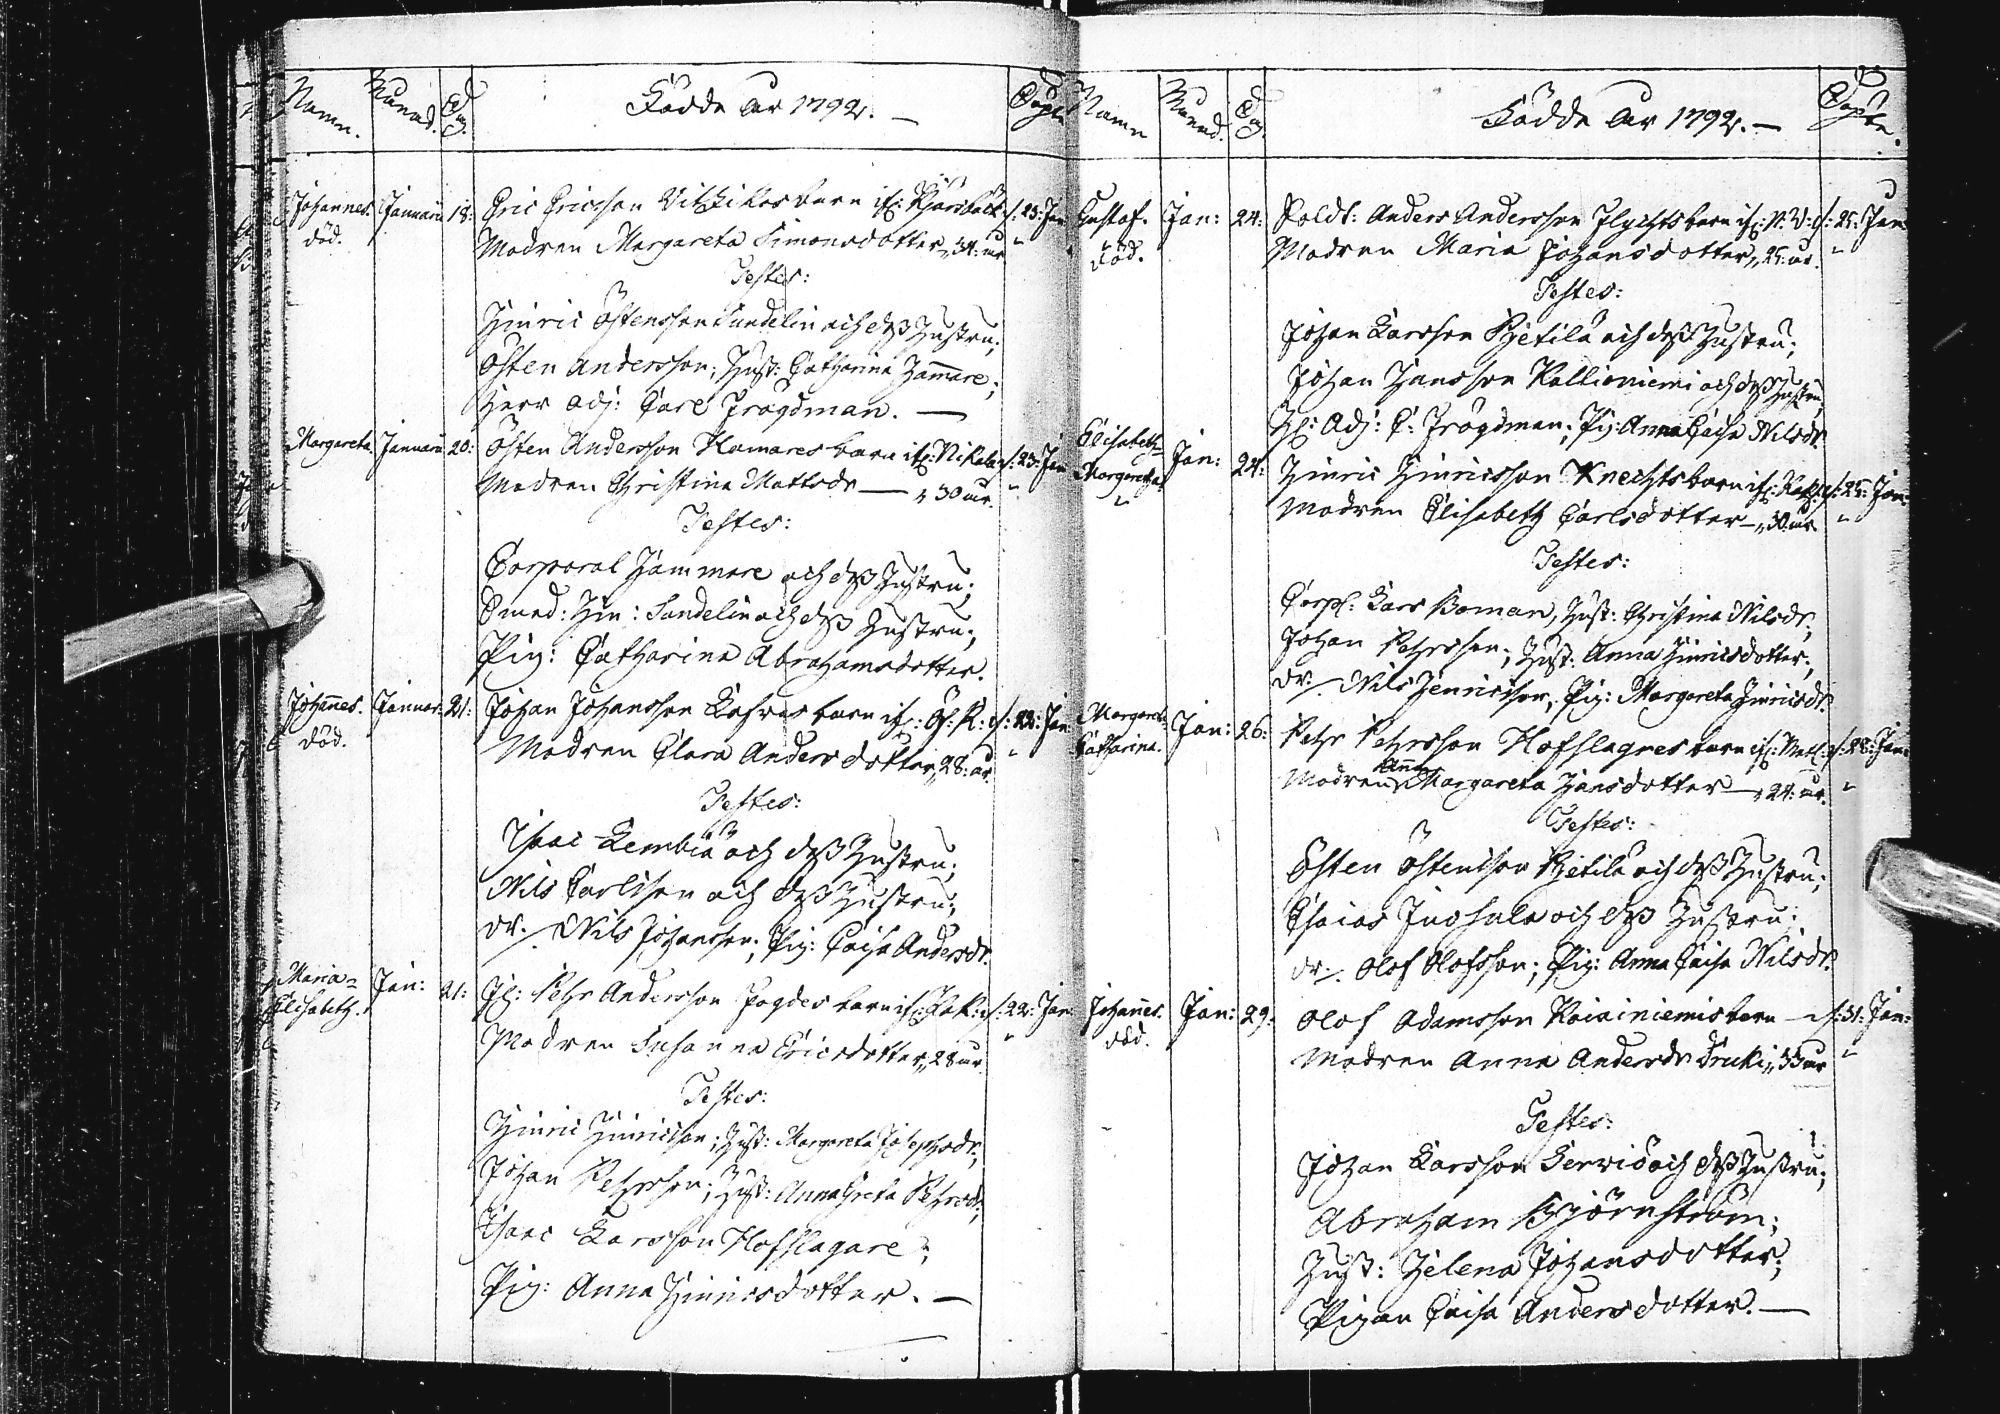 Namn. Månad. Dag. Födde År 1792. — Döpte
Johannes. Januarii 18: Eric Ericsson barn if: d: 23: Jan:
död. Modren Margareta Simonsdotter, 34: år "
Testes:
Hinric Östensson Sundelin och dess Hustru;
Östen Andersson; Hust: Catharina Hammare;
Herr Adj: Carl Frogdman. —
Margareta Januarii 20: Östen Andersson Hamares barn if: Nikola d: 23: Jan
Modren Christina Mattsdr — " 30 år. "
Testes:
Corporal Hammare och dess Hustru;
Smed: Hin: Sundelin och dess Hustru;
Pig: Catharina Abrahamsdotter.
Johannes. Januar: 21: Johan Johansson barn if: d: 22: Jan
död. Modren Clara Andersdotter, 28: år "
Testes:
Isaac Lembiä och dess Hustru;
Nils Carlsson och dess Hustru;
dr. Nils Johansson; Pig: Caisa Andersdr.
Maria= Jan: 21: Petr Andersson barn if: d: 22: Jan:
Elisabeth. Modren Susanna Ericsdotter, 28 år "
Testes:
Hinric Hinricsson; Hust: Margareta Josephsdr;
Johan Petrsson; Hust: Anna Greta Petrsdr;
Isaac Larsson Hofslagare;
Pig: Anna Hinricsdotter. —
Namn Månad. Dag. Födde År 1792. — Döpte.
Gustaf. Jan: 24: Soldt: Anders Andersson barn if: N: d: 25: Jan:
död. Modren Maria Johansdotter, 25: år. "
Testes:
Johan Larsson Pietilä och dess Hustru;
Johan Hansson Kallioniemi och dess Hustru;
Adj: C: Frogdman; Pig: Anna Caisa Nilsdr.
Elisabeth= Jan: 24: Hinric Hinricsson Knechts barn if: d: 25: Jan:
Margareta " Modren Elisabeth Carlsdotter — " 30. år "
Testes:
Corpl: Lars Boman, Hust: Christina Nilsdr;
Johan Petrsson; Hust: Anna Hinricsdotter;
dr. Nils Henricsson, Pig: Margareta Hinricsdr.
Margareta Jan: 26: Petr Petrsson Hofslagres barn if: d: 28: Jan:
Catharina. Modren Anna Margareta Hansdotter — " 24: år. "
Testes:
Östen Östensson Pietilä och dess Hustru;
Esaias Juohula och dess Hustru;
dr. Olof Olofsson; Pig: Anna Caisa Nilsdr.
Johannes. Jan: 29: Olof Adamsson Koiviniemis barn — d: 31: Jan:
död. Modren Anna Andersdr Druki, 33 år "
Testes:
Johan Larsson Servio och dess Hustru;
Abraham Björnström;
Hust: Helena Johansdotter;
Pigan Caisa Andersdotter. —